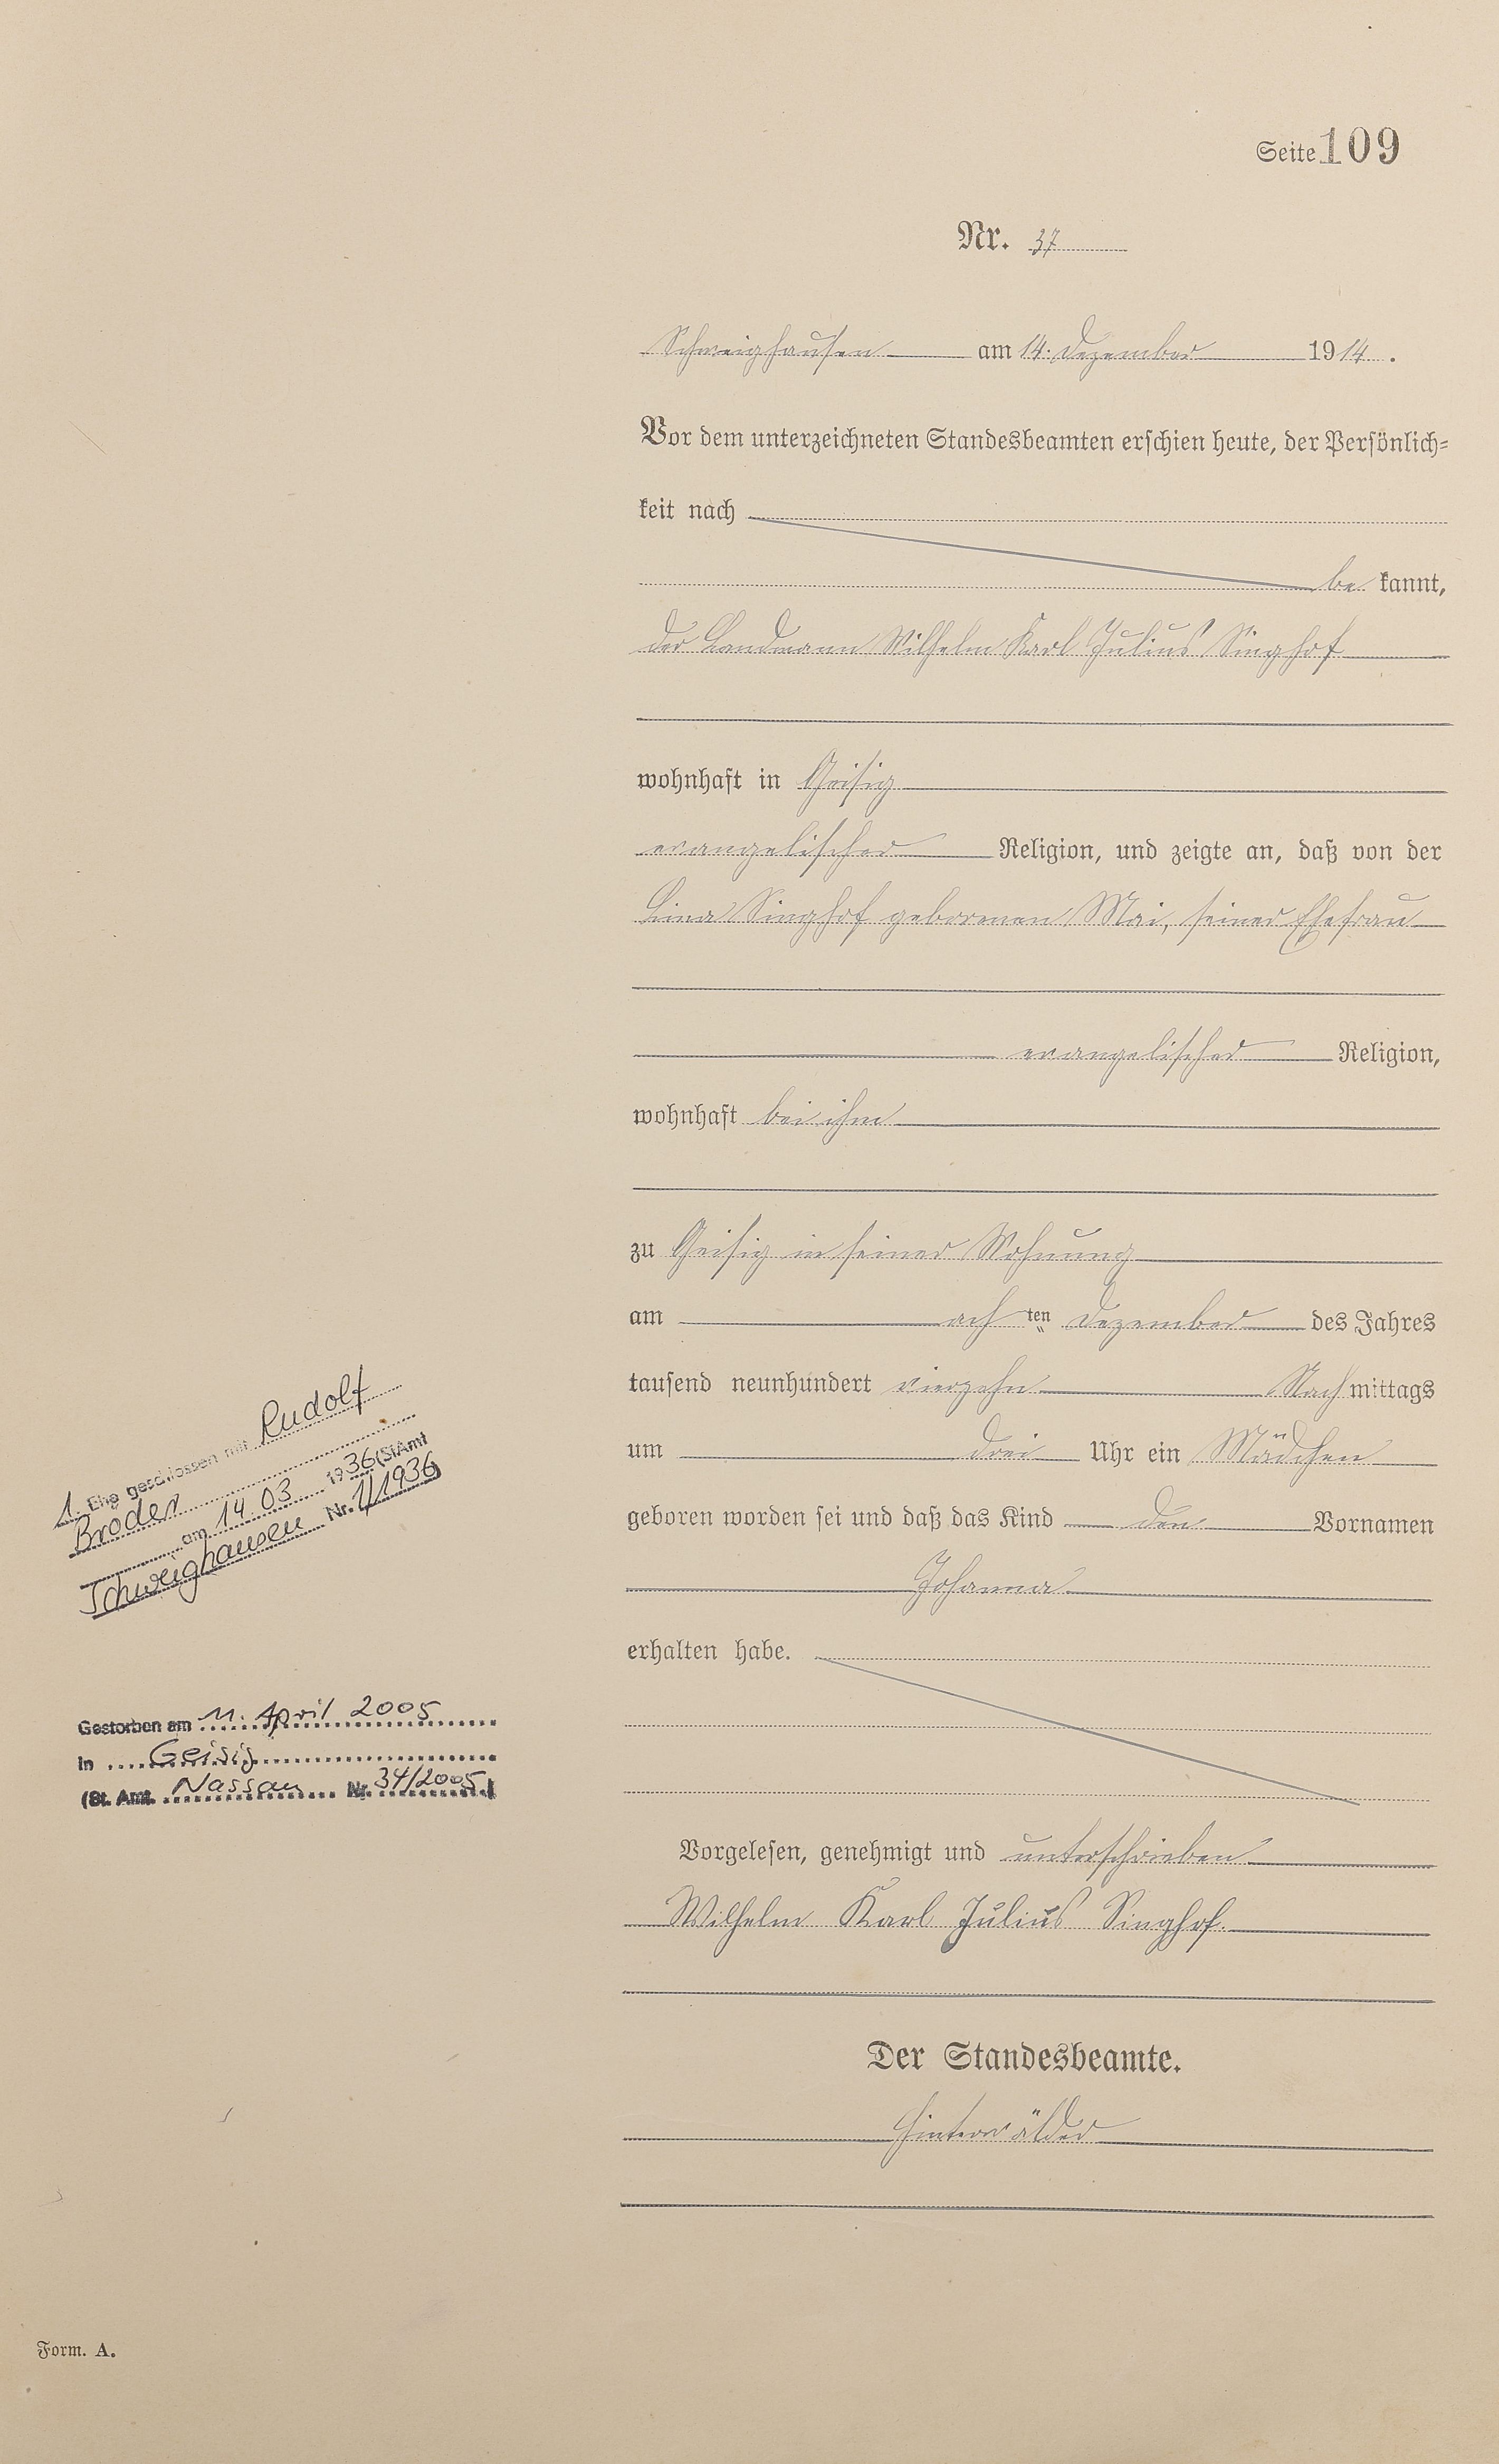 Seite 109
Nr. 37
Schweighausen am 14. Dezember 1914.
Vor dem unterzeichneten Standesbeamten erschien heute, der Persönlich-
keit nach
be kannt,
der Landmann Wilhelm Karl Julius Singhof
wohnhaft in Geisig
evangelischer Religion, und zeigte an, daß von der
Lina Singhof geborenen Mai, seiner Ehefrau
evangelischer Religion,
wohnhaft bei ihm
zu Geisig in seiner Wohnung
am ach ten Dezember des Jahres
tausend neunhundert vierzehn Nach mittags
um drei Uhr ein Mädchen
geboren worden sei und daß das Kind den Vornamen
Johanna
erhalten habe.
Vorgelesen, genehmigt und unterschrieben
Wilhelm Karl Julius Singhof.
Der Standesbeamte.
Hinterwälder
1. Ehe geschlossen mit Rudolf
Bröder
am 14.03 1936 (StAmt
Schweighausen Nr. 1/1936)
Gestorben am 11. April 2005
in Geisig
(St. Amt. Nassau Nr. 34/2005)
Form. A.